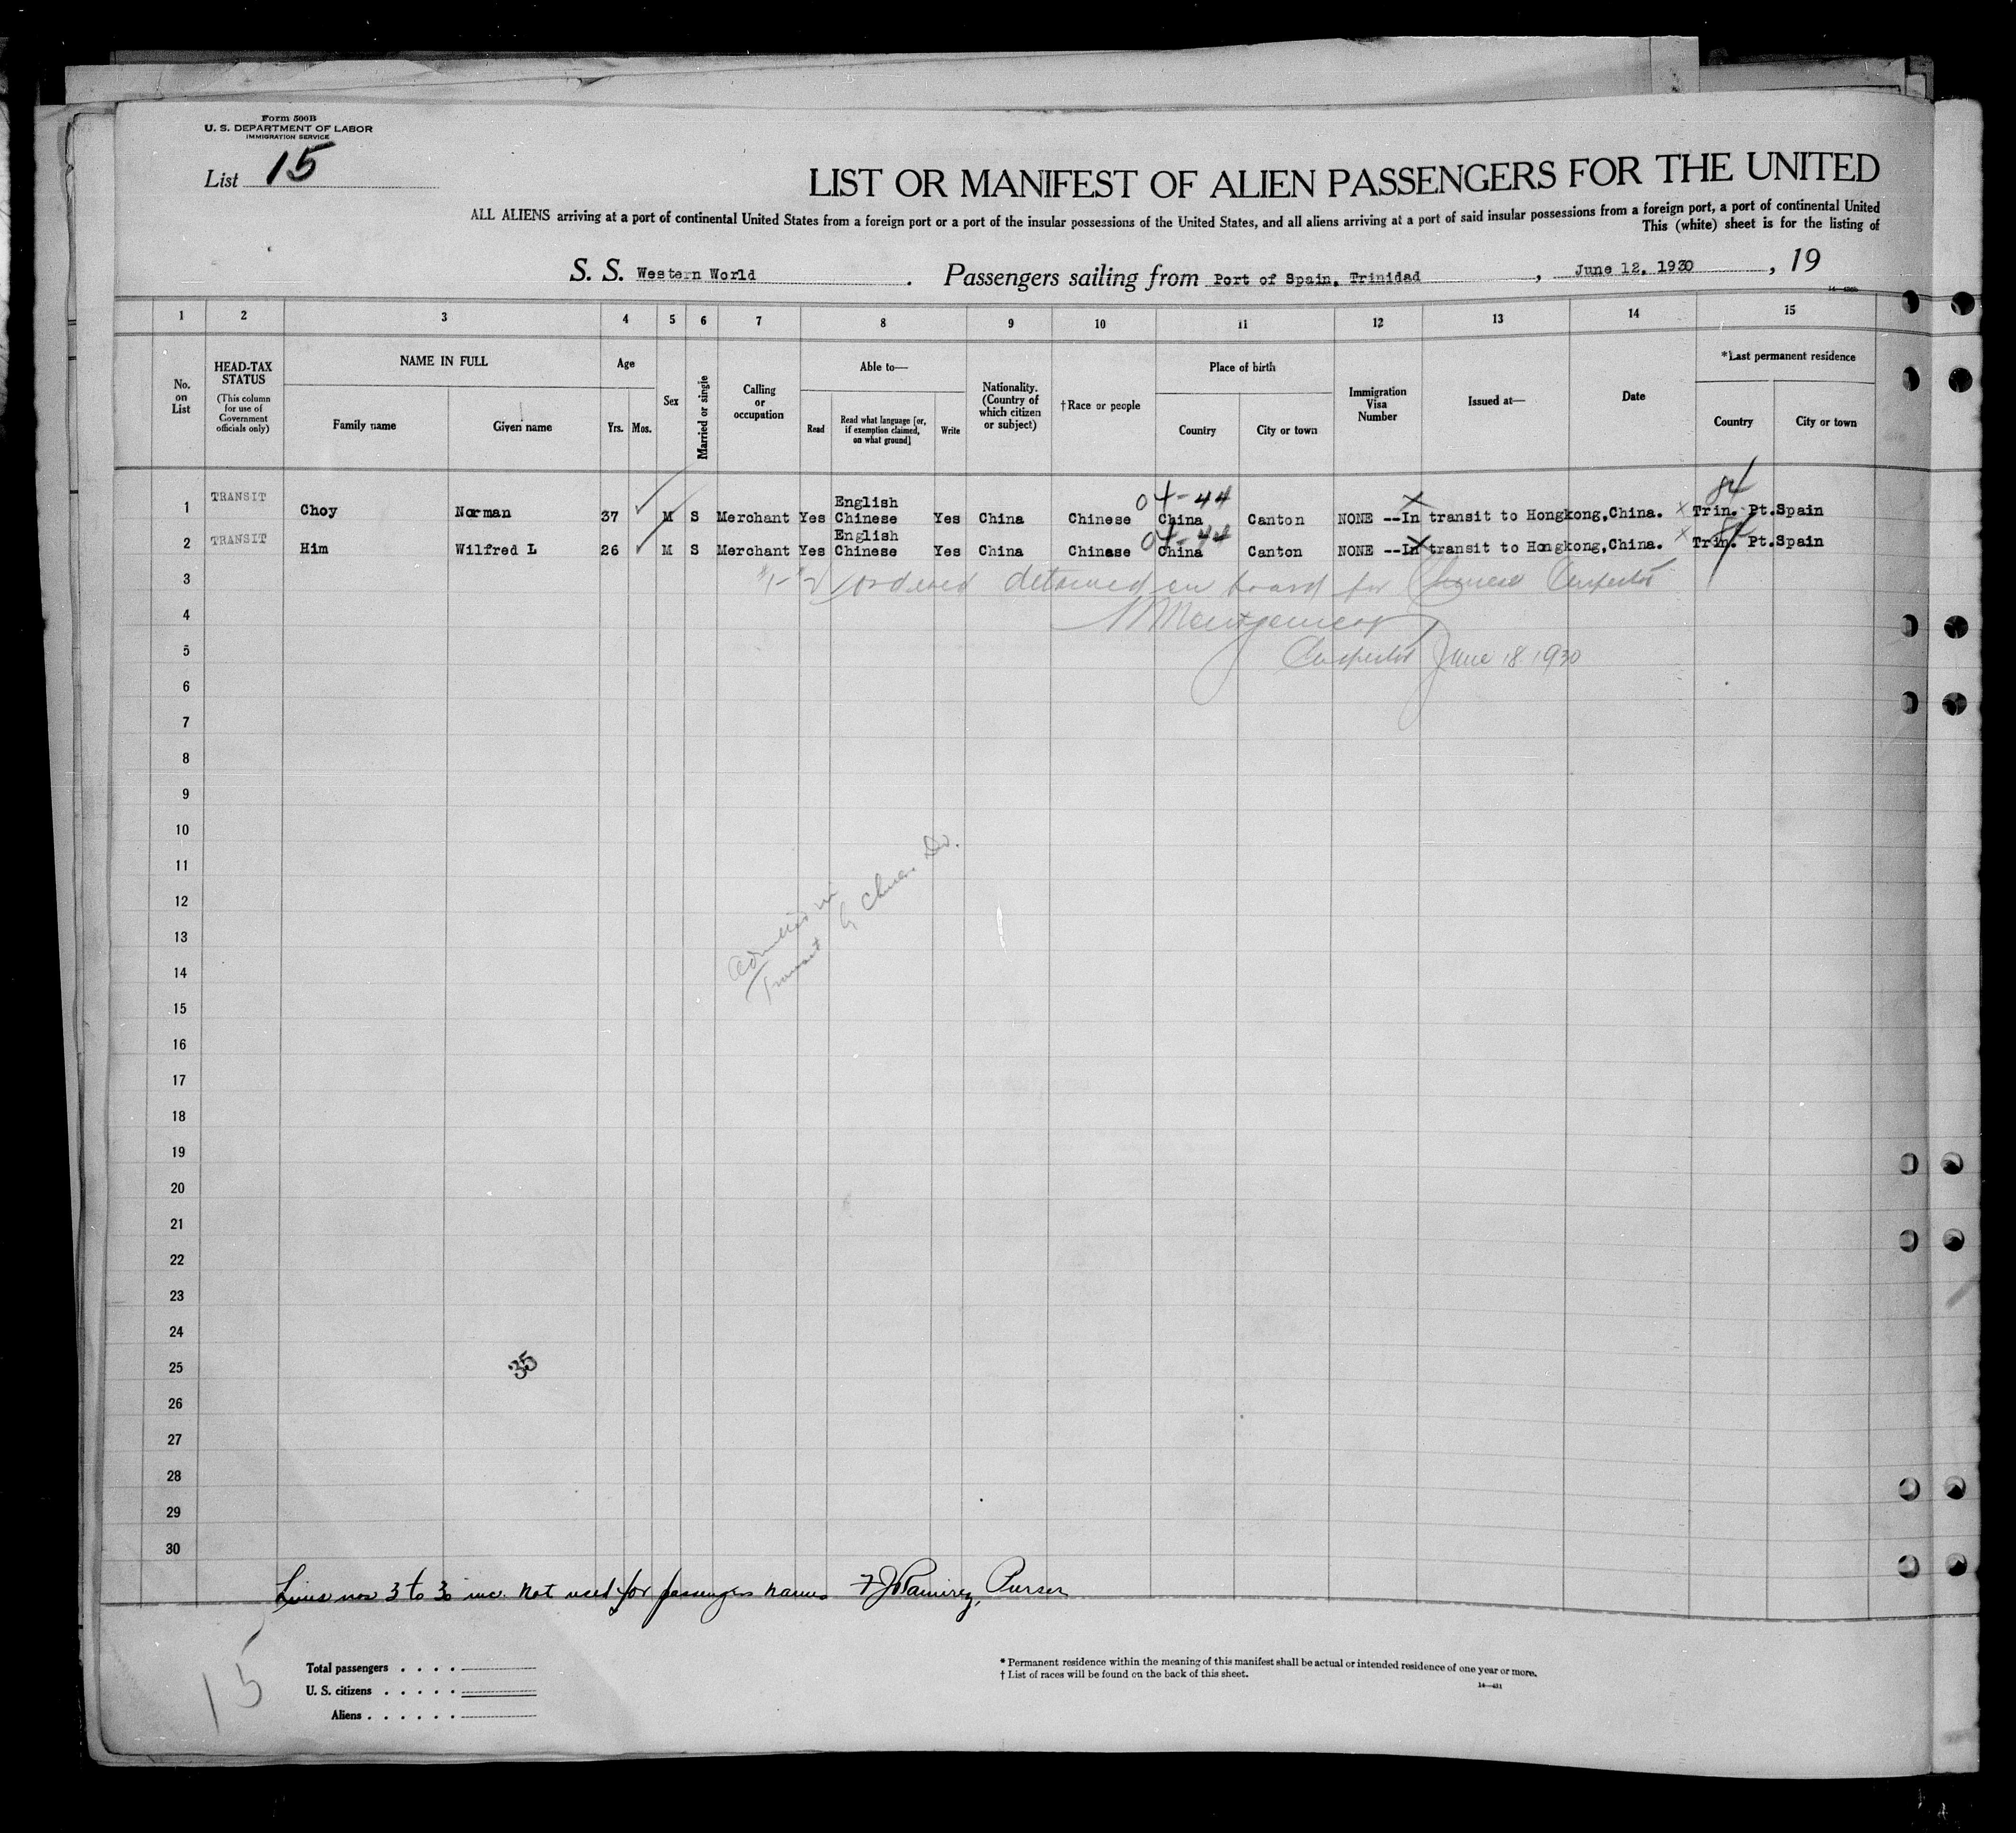 Form 500B
U. S. DEPARTMENT OF LABOR
IMMIGRATION SERVICE
List 15
LIST OR MANIFEST OF ALIEN PASSENGERS FOR THE UNITED
ALL ALIENS arriving at a port of continental United States from a foreign port or a port of the insular possessions of the United States, and all aliens arriving at a port of said insular possessions from a foreign port, a port of continental United
This (white) sheet is for the listing of
S. S. Western World . Passengers sailing from Port of Spain, Trinidad , June 12, 1930 , 19
1 2 3 4 5 6 7 8 9 10 11 12 13 14 15
No. on List
HEAD-TAX STATUS
(This column for use of Government officials only)
NAME IN FULL
Family name
Given name
Age
Yrs. Mos.
Sex
Married or single
Calling or occupation
Able to—
Read
Read what language [or, if exemption claimed, on what ground]
Write
Nationality. (Country of which citizen or subject)
†Race or people
Place of birth
Country
City or town
Immigration Visa Number
Issued at—
Date
*Last permanent residence
Country
City or town
04-44
84
1 TRANSIT Choy Norman 37 M S Merchant Yes English Chinese Yes China Chinese China Canton NONE --In transit to Hongkong,China. x Trin. Pt.Spain
04-44
84
2 TRANSIT Him Wilfred L 26 M S Merchant Yes English Chinese Yes China Chinese China Canton NONE --In transit to Hongkong,China. x Trin. Pt.Spain
3 #1-#2 ordered detained on board for Chinese Inspector
4 Montgomery
5 Inspector June 18 1930
6
7
8
9
10
11
12
13
14
15
16
17
18
19
20
21
22
23
24
25
26
27
28
29
30
Admitted in
Transit by Chinese Div.
35
Lines nos 3 to 30 inc. not used for passengers names F J Ramirez, Purser
15
Total passengers . . . .
U. S. citizens . . . . .
Aliens . . . . . .
* Permanent residence within the meaning of this manifest shall be actual or intended residence of one year or more.
† List of races will be found on the back of this sheet.
14—431